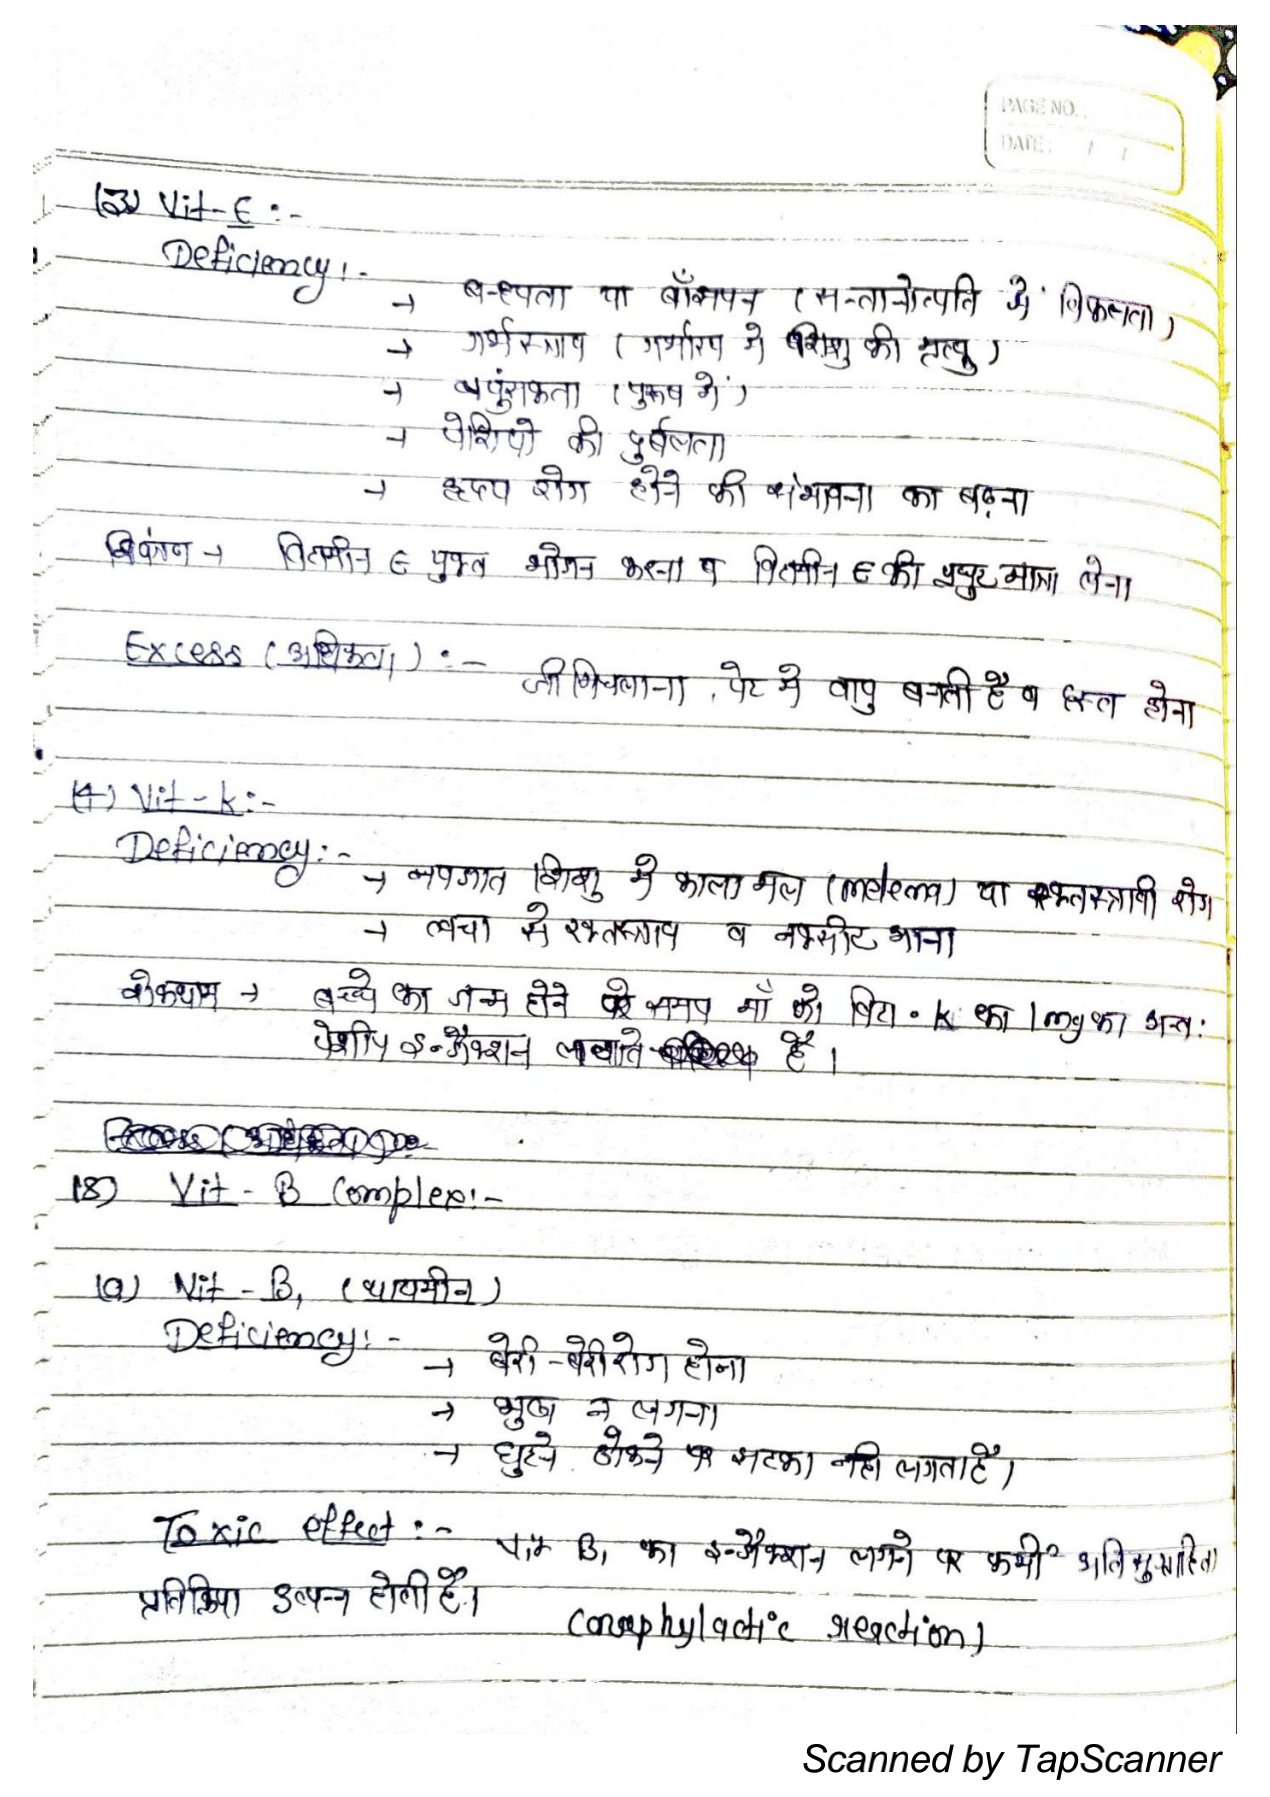 PAGE NO. :
DATE : / /
(3) Vit-E :-
Deficiency :-
→ बन्ध्यता या बाँझपन (सन्तानोत्पति में विफलता)
→ गर्भस्त्राव (गर्भाशय में शिशु की मृत्यु)
→ नपुंसकता (पुरूष में)
→ पेशियो की दुर्बलता
→ हृदय रोग होने की संभावना का बढ़ना
→ विटामीन E युक्त भोजन करना व विटामीन E की प्रचुर मात्रा लेना
Excess (अधिकता) :-
जी मिचलाना, पेट मे वायु बनती है व दस्त होना
(4) Vit-K :-
Deficiency :-
→ नवजात शिशु मे काला मल (melema) या रक्तस्त्रावी रोग
→ त्वचा से रक्तस्त्राव व नकसीर आना
रोकथाम → बच्चे का जन्म होने समय माँ को विटा. K का 1mg का अन्त:
पेशीय इन्जैक्शन लगाते है।
(8) Vit - B Complex :-
(a) Vit - B₁ (थायमीन)
Deficiency :-
→ बेरी-बेरी रोग होना
→ भुख न लगना
→ घुटने ठोकने पर झटका नही लगता है।
Toxic effect :-
Vit B₁ का इन्जैक्शन लगने पर कभी² अति सुग्राहिता
प्रतिक्रिया उत्पन्न होती है।
(anaphylactic reaction)
Scanned by TapScanner